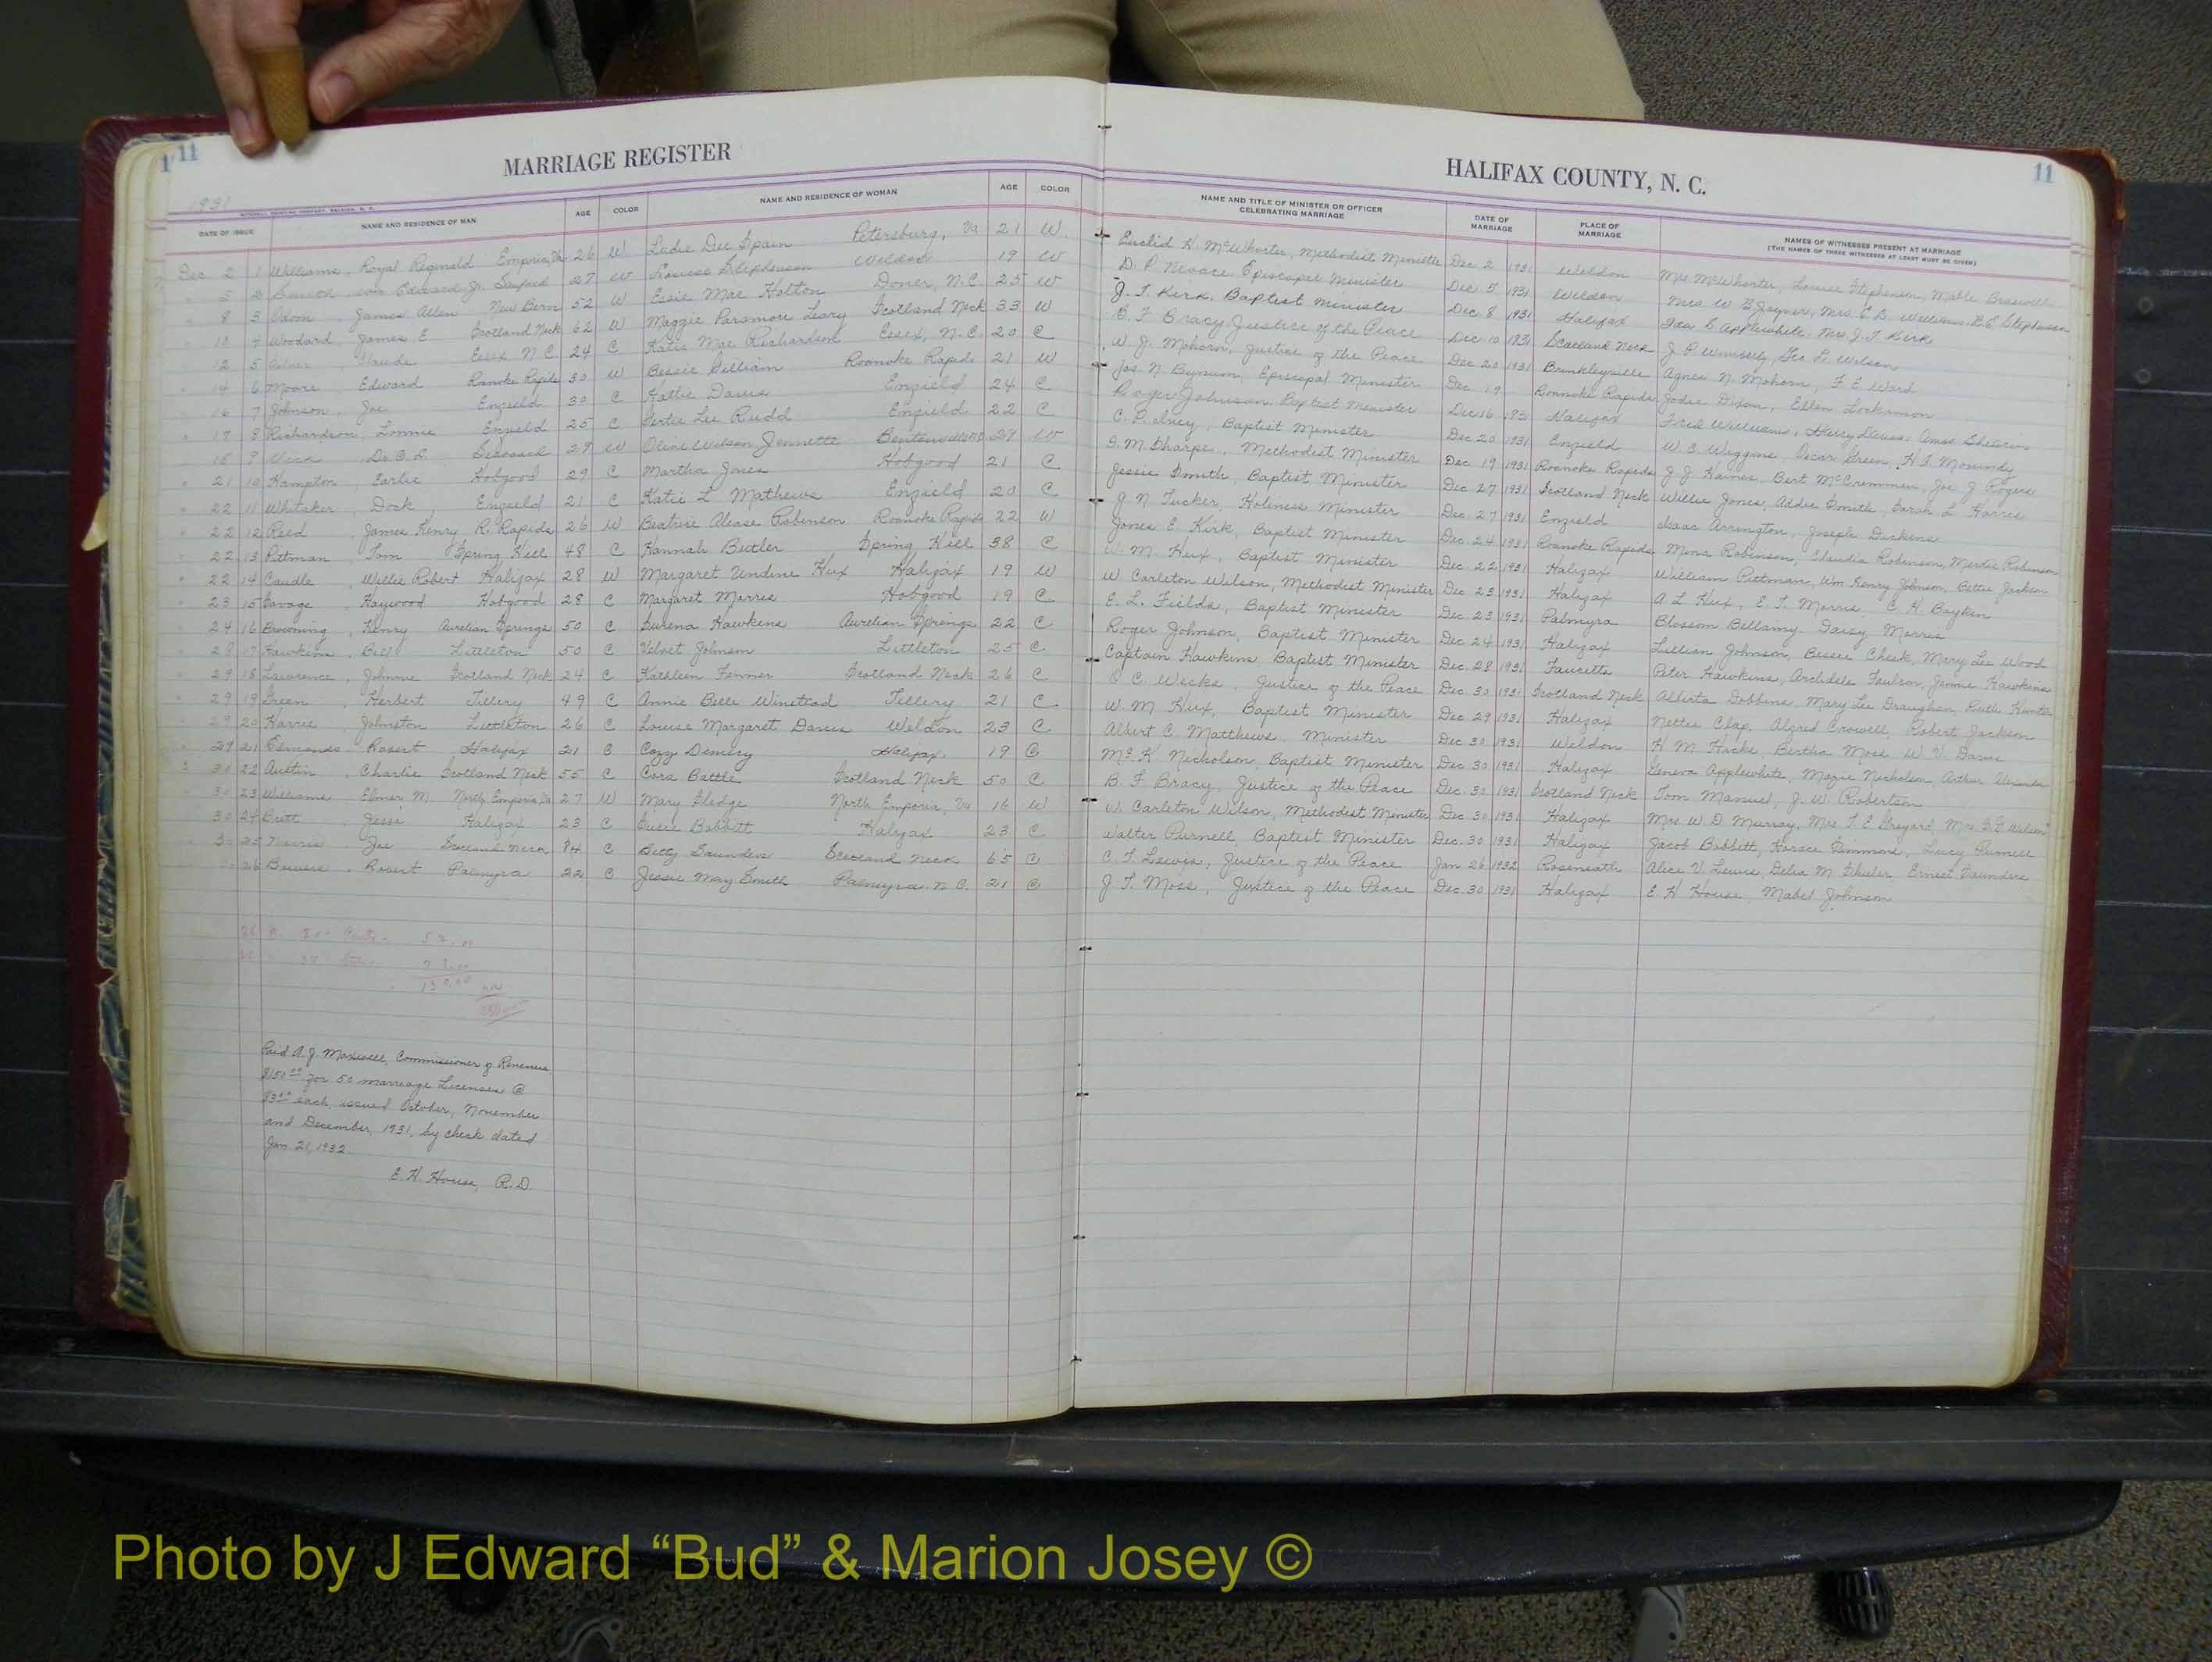 11
MARRIAGE REGISTER
1931
DATE OF ISSUE NAME AND RESIDENCE OF MAN AGE COLOR NAME AND RESIDENCE OF WOMAN AGE COLOR
Dec 2 1 Williams, Royal Reginald Emporia, Va 26 W Ladie Dee Spain Petersburg, Va 21 W
5 2 Smith Edward Jr. 27 W Stephenson Weldon 19 W
8 3 Odom, James Allen New Bern 52 W Essie Mae Holton Dover, N.C. 25 W
10 4 Woodard, James E Scotland Neck 62 W Maggie Paramore Leary Scotland Neck 33 W
12 5 Essex N.C. 24 C Katie Mae Richardson Essex, N.C. 20 C
14 6 Moore Edward Roanoke Rapids 30 W Bessie Gilliam Roanoke Rapids 21 W
16 7 Johnson, Joe Enfield 30 C Hattie Davis Enfield 24 C
17 8 Richardson, Lonnie Enfield 25 C Lee Rudd Enfield 22 C
18 9 27 W Wilson Jennette 24 W
21 10 Hampton, Earlie Hobgood 29 C Martha Jones Hobgood 21 C
22 11 Whitaker, Dock Enfield 21 C Katie L Mathews Enfield 20 C
22 12 Reed, James Henry R. Rapids 26 W Beatrice Alease Robinson Roanoke Rapids 22 W
22 13 Pittman, Tom Spring Hill 48 C Hannah Butler Spring Hill 38 C
22 14 Caudle, Willie Robert Halifax 28 W Margaret Undine Hux Halifax 19 W
23 15 Savage, Haywood Hobgood 28 C Margaret Morris Hobgood 19 C
24 16 Browning, Henry Aurelian Springs 50 C Hawkins Aurelian Springs 22 C
28 17 Hawkins, Bill Littleton 50 C Velvet Johnson Littleton 25 C
29 18 Lawrence, Johnnie Scotland Neck 24 C Kathleen Fenner Scotland Neck 26 C
29 19 Green, Herbert Tillery 49 C Annie Belle Winstead Tillery 21 C
29 20 Harris, Johnston Littleton 26 C Louise Margaret Davis Weldon 23 C
29 21 Edmonds, Robert Halifax 21 C Cozy Demery Halifax 19 C
30 22 Austin, Charlie Scotland Neck 55 C Cora Battle Scotland Neck 50 C
30 23 Williams Elmer M North Emporia, Va 27 W Mary Sledge North Emporia, Va 16 W
30 24 Jesse Halifax 23 C Susie Babbitt Halifax 23 C
25 Joe Scotland Neck 84 C Betty Saunders Scotland Neck 65 C
26 Bowers, Robert Palmyra 22 C Jessie May Smith Palmyra N.C. 21 C
Paid A. J. Maxwell, Commissioner of Revenue
$150.00 for 50 marriage licenses @
$3.00 each, issued October, November
and December, 1931, by check dated
Jan. 21, 1932.
E. H. House, R.D.
HALIFAX COUNTY, N. C.
11
NAME AND TITLE OF MINISTER OR OFFICER CELEBRATING MARRIAGE DATE OF MARRIAGE PLACE OF MARRIAGE NAMES OF WITNESSES PRESENT AT MARRIAGE
(THE NAMES OF THREE WITNESSES AT LEAST MUST BE GIVEN)
Euclid McWhorter, Methodist Minister Dec. 2 1931 Weldon Mrs McWhorter, Louise Stephenson, Mable Braswell
D. P. Moore Episcopal Minister Dec 5 1931 Weldon Mrs. W. B. Joyner, Mrs. E. B. Williams, Stephenson
J. T. Kirk, Baptist Minister Dec. 8 1931 Halifax Ida S Applewhite, Mrs J. T. Kirk
B. F. Bracy Justice of the Peace Dec 10 1931 Scotland Neck J. P. Wimberly, Geo L. Wilson
W. J. Mohorn, Justice of the Peace Dec 20 1931 Brinkleyville Agnes N. Mohorn, F. E. Ward
Jos. N. Bynum, Episcopal Minister Dec. 19 Roanoke Rapids Jodie Dixon, Ellen
Roger Johnson, Baptist Minister Dec 16 1931 Halifax Fred Williams, Davis, Amos
C. P. Ivey, Baptist Minister Dec 20 1931 Enfield W. C. Wiggins, Oscar Green
Sharpe, Methodist Minister Dec 19 1931 Roanoke Rapids J J Haines, Bert McCremmen, Joe J Rogers
Jessie Smith, Baptist Minister Dec 27 1931 Scotland Neck Willie Jones, Addie Smith, Sarah L. Harris
J N Tucker, Holiness Minister Dec. 27 1931 Enfield Isaac Arrington, Joseph Dickens
Jones E. Kirk, Baptist Minister Dec. 24 1931 Roanoke Rapids Robinson, Claudia Robinson, Robinson
W. M. Hux, Baptist Minister Dec. 22 1931 Halifax William Pittman, Wm Henry Johnson, Bettie Jackson
W. Carleton Wilson, Methodist Minister Dec 23 1931 Halifax A L Hux, E. T. Morris C. H. Boykin
E. L. Fields, Baptist Minister Dec 23 1931 Palmyra Blossom Bellamy, Daisy Morris
Roger Johnson, Baptist Minister Dec 24 1931 Halifax Lillian Johnson, Bessie Cheek, Mary Lee Wood
Captain Hawkins, Baptist Minister Dec. 28 1931 Faucetts Peter Hawkins, Archdele Faulcon, Jennie Hawkins
C. Weeks, Justice of the Peace Dec. 30 1931 Scotland Neck Alberta Dobbins, Mary Lee Draughan, Ruth Hunter
W. M Hux, Baptist Minister Dec. 29 1931 Halifax Nettie Clap, Alfred Crowell, Robert Jackson
Albert C. Matthews, Minister Dec 30 1931 Weldon H. M. Hicks Bertha Moss W. V. Davis
Nicholson, Baptist Minister Dec. 30 1931 Halifax Geneva Applewhite, Mazie Nicholson, Arthur Alexander
B. F Bracy, Justice of the Peace Dec. 30 1931 Scotland Neck Tom Manuel, J. W. Robertson
W. Carleton Wilson, Methodist Minister Dec 30 1931 Halifax Mrs W. D Murray, Mrs. T. E. Gregard, Mrs. Wilson
Walter Purnell, Baptist Minister Dec. 30 1931 Halifax Jacob Babbitt, Horace Simmons, Lucy Purnell
C. T. Lewis, Justice of the Peace Jan 26 1932 Roseneath Alice V. Lewis, Delia M. Ernest Saunders
J. T. Moss, Justice of the Peace Dec. 30 1931 Halifax E. H House, Mabel Johnson
Photo by J Edward “Bud” & Marion Josey ©